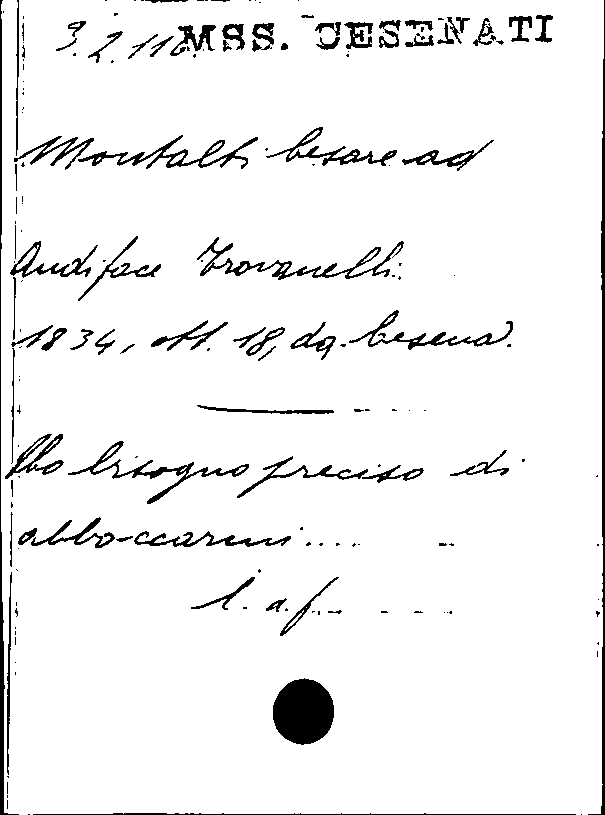 3.2.116 MSS. CESENATI
Montalti Cesare ad
Audiface Trovanelli.
1834, ott. 18, da Cesena.
Ho bisogno preciso di
abboccarmi....
l. a. f.